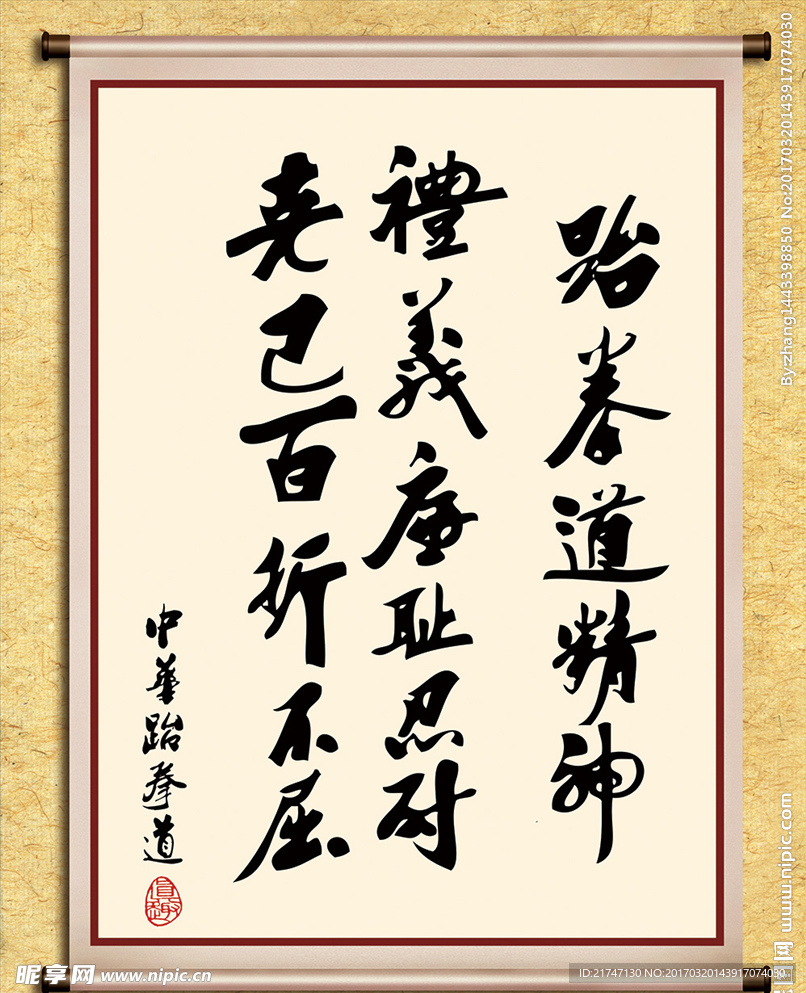 跆拳道精神
禮義廉耻忍耐
克己百折不屈
中華跆拳道
By:zhang1443398850 No:20170320143917074030
图网 www.nipic.com
昵享网 www.nipic.cn
ID:21747130 NO:20170320143917074030